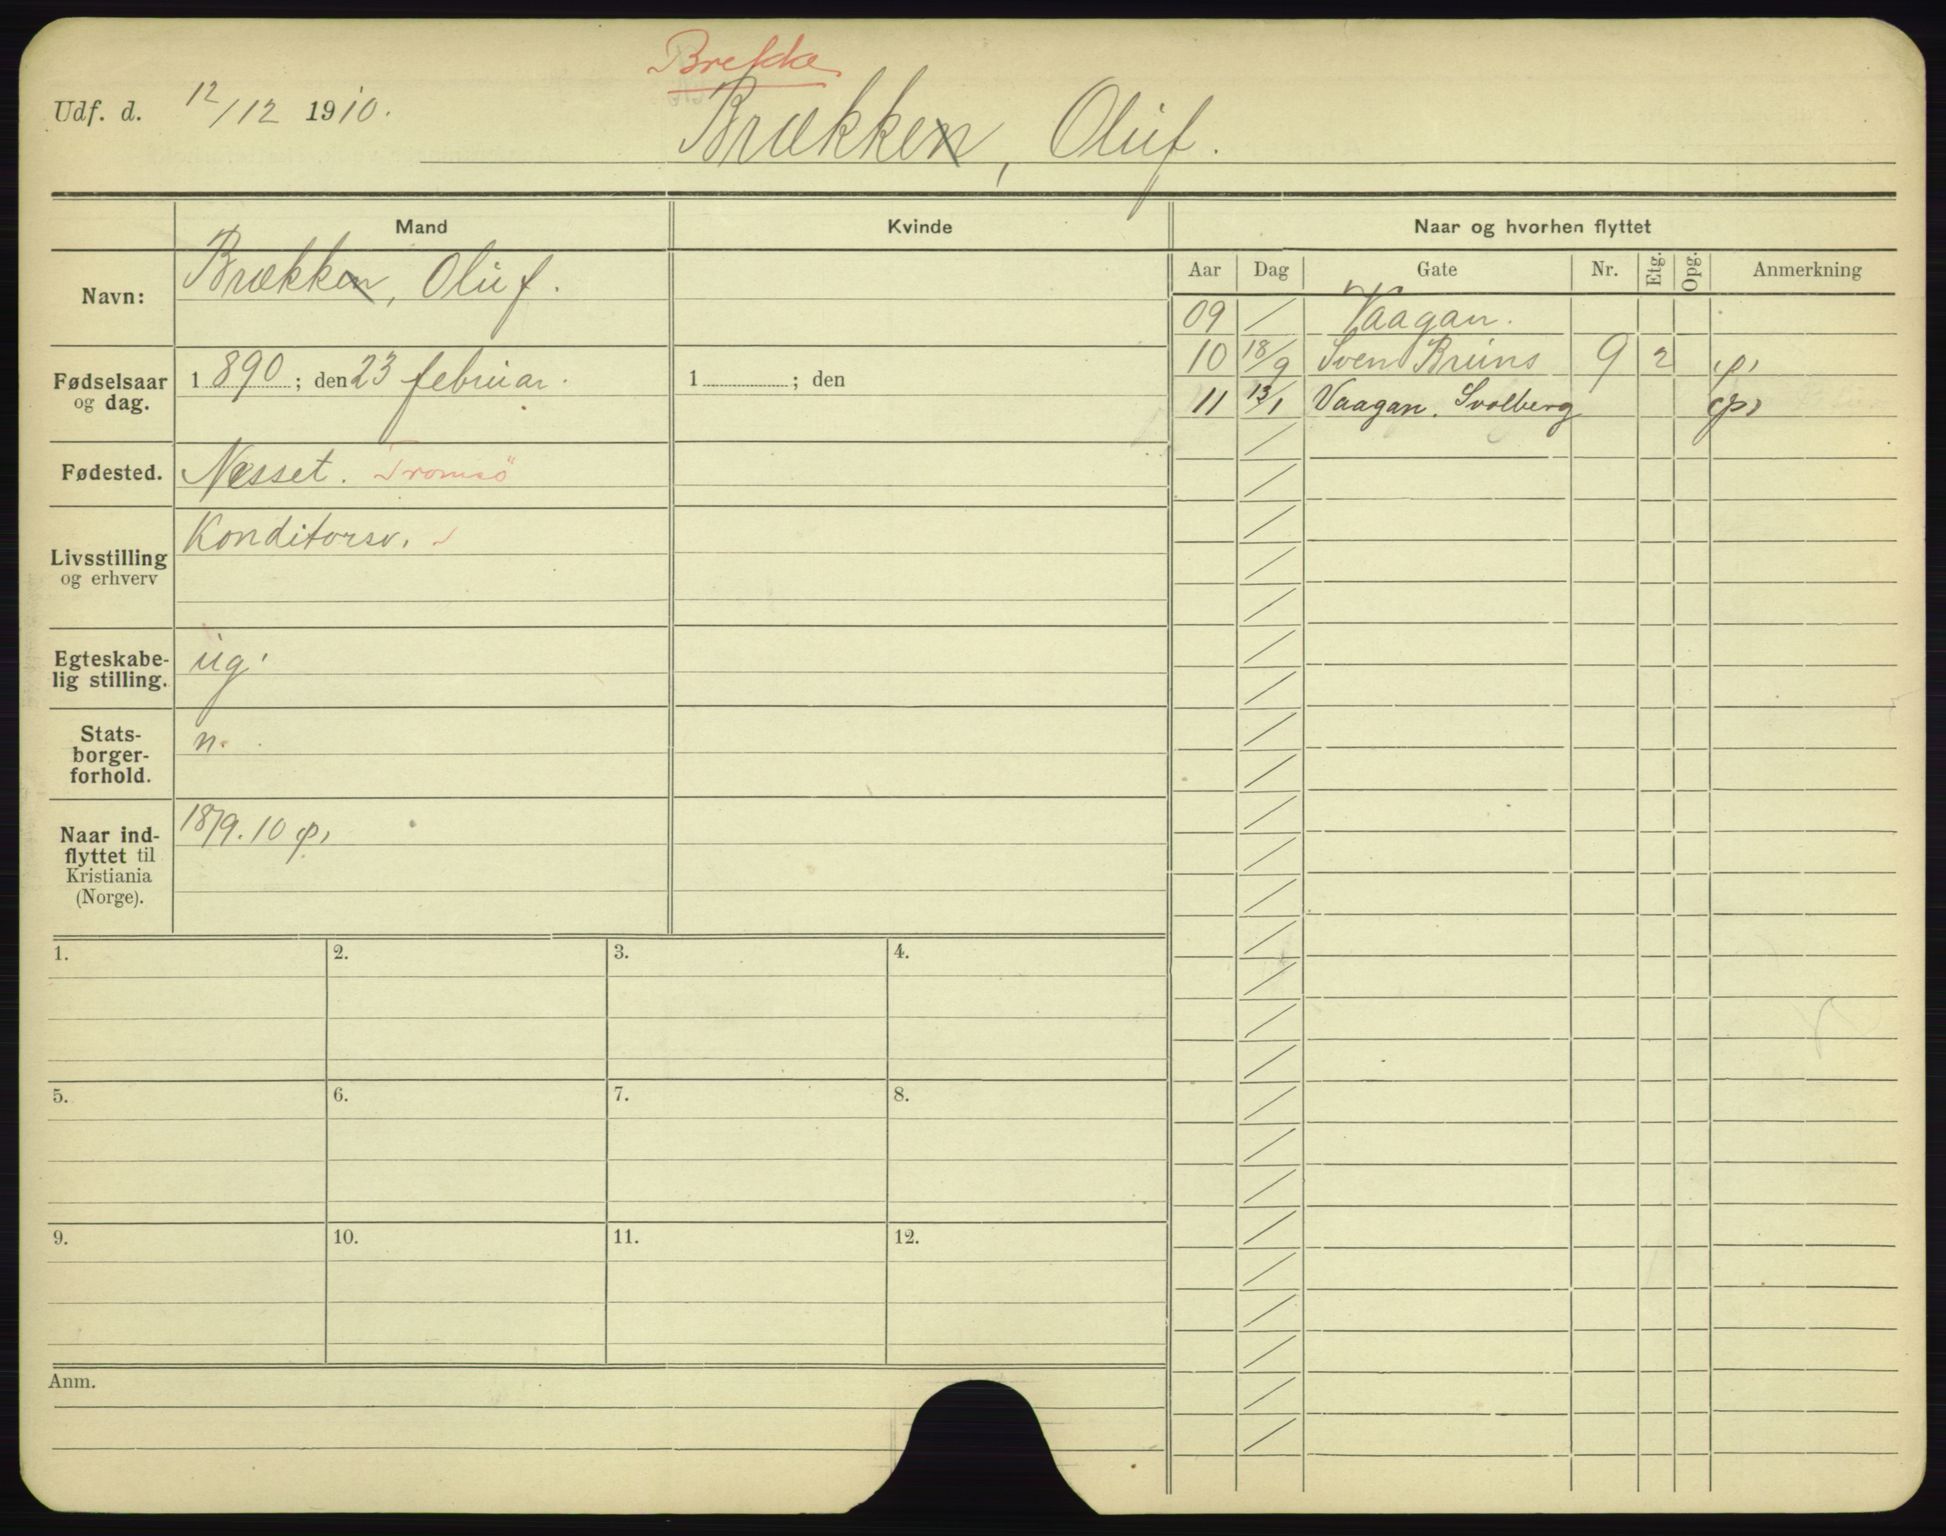 Brekke
Udf. d. 12/12 1910.
Brækken, Oluf.
Mand Kvinde Naar og hvorhen flyttet
Aar Dag Gate Nr. Etg. Opg. Anmerkning
Navn: Brækken, Oluf.
09 / Vaagan.
10 18/9 Sven Bruns 9 2 φ,
11 13/1 Vaagan. Svolberg φ,
Fødselsaar og dag. 1890; den 23 februar. 1 ; den
Fødested. Næsset. Tromsö
Livsstilling og erhverv Konditorsv.
Egteskabe-
lig stilling. ug.
Stats-
borger-
forhold. n.
Naar ind-
flyttet til
Kristiania
(Norge). 18/9.10 φ,
1. 2. 3. 4.
5. 6. 7. 8.
9. 10. 11. 12.
Anm.